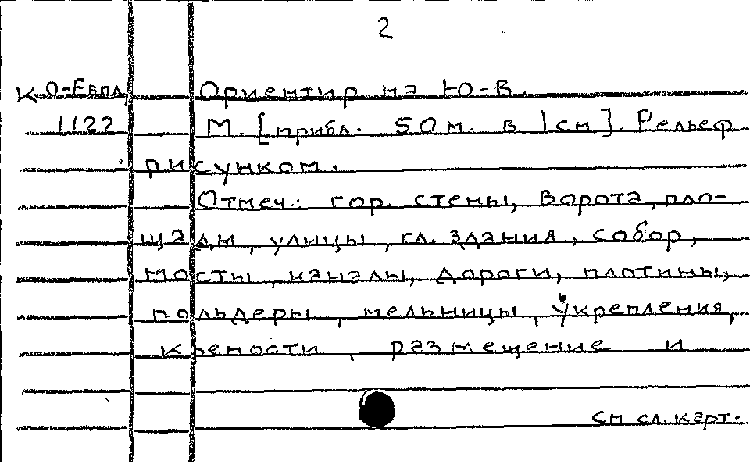 2
К О-Евпа Ориентир на Ю-В.
1122 М. [прибл. 50м. в 1см]. Рельеф
рисунком.
Отмеч.: гор. стены, ворота, пло-
щади, улицы, гл. здания, собор,
мосты, каналы, дороги, плотины,
польдеры, мельницы, укрепления,
крепости, размещение и
См сл. карт.